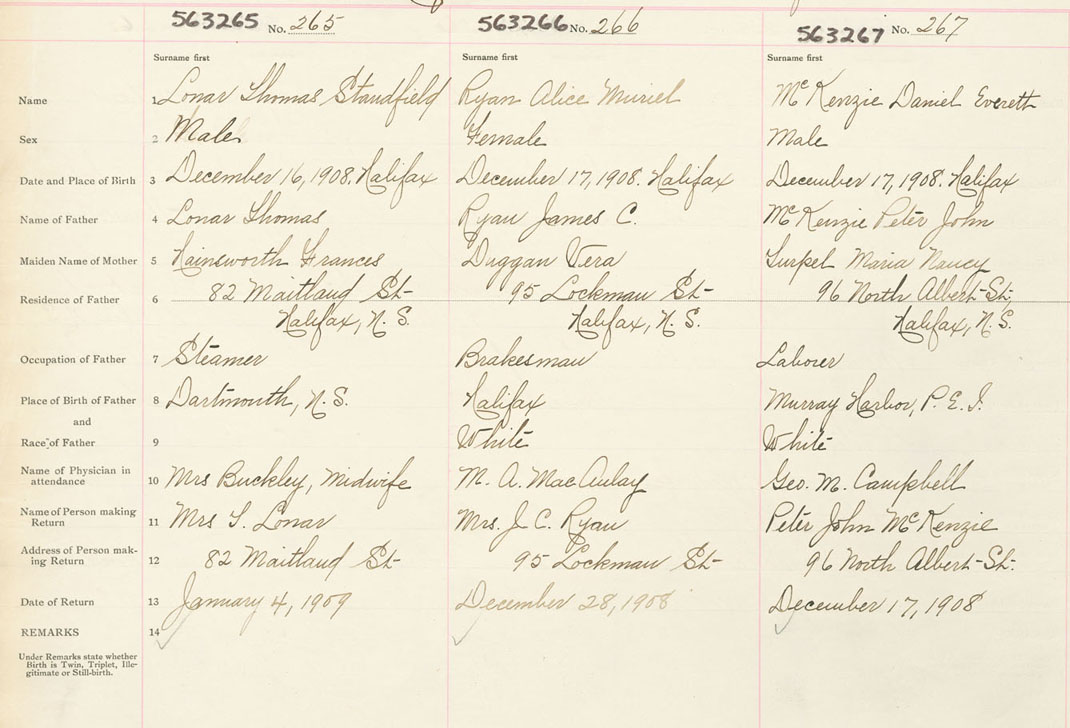 563265 No. 265 563266 No. 266 563267 No. 267
Surname first Surname first Surname first
Name 1 Lonar Thomas Standfield Ryan Alice Muriel McKenzie Daniel Everett
Sex 2 Male Female Male
Date and Place of Birth 3 December 16, 1908. Halifax December 17, 1908. Halifax December 17, 1908. Halifax
Name of Father 4 Lonar Thomas Ryan James C. McKenzie Peter John
Maiden Name of Mother 5 Hainsworth Frances Duggan Vera Maria Nancy
Residence of Father 6 82 Maitland St- 95 Lockman St- 96 North Albert-St.
Halifax, N.S. Halifax, N.S. Halifax, N.S.
Occupation of Father 7 Steamer Brakesman Laborer
Place of Birth of Father 8 Dartmouth, N.S. Halifax Murray Harbor, P.E.I.
and
Race of Father 9 White White
Name of Physician in
attendance 10 Mrs Buckley, Midwife M. A. MacAulay Geo. M. Campbell
Name of Person making
Return 11 Mrs T. Lonar Mrs. J. C. Ryan Peter John McKenzie
Address of Person mak-
ing Return 12 82 Maitland St- 95 Lockman St- 96 North Albert-St.
Date of Return 13 January 4, 1909 December 28, 1908 December 17, 1908
REMARKS 14
Under Remarks state whether
Birth is Twin, Triplet, Ille-
gitimate or Still-birth.